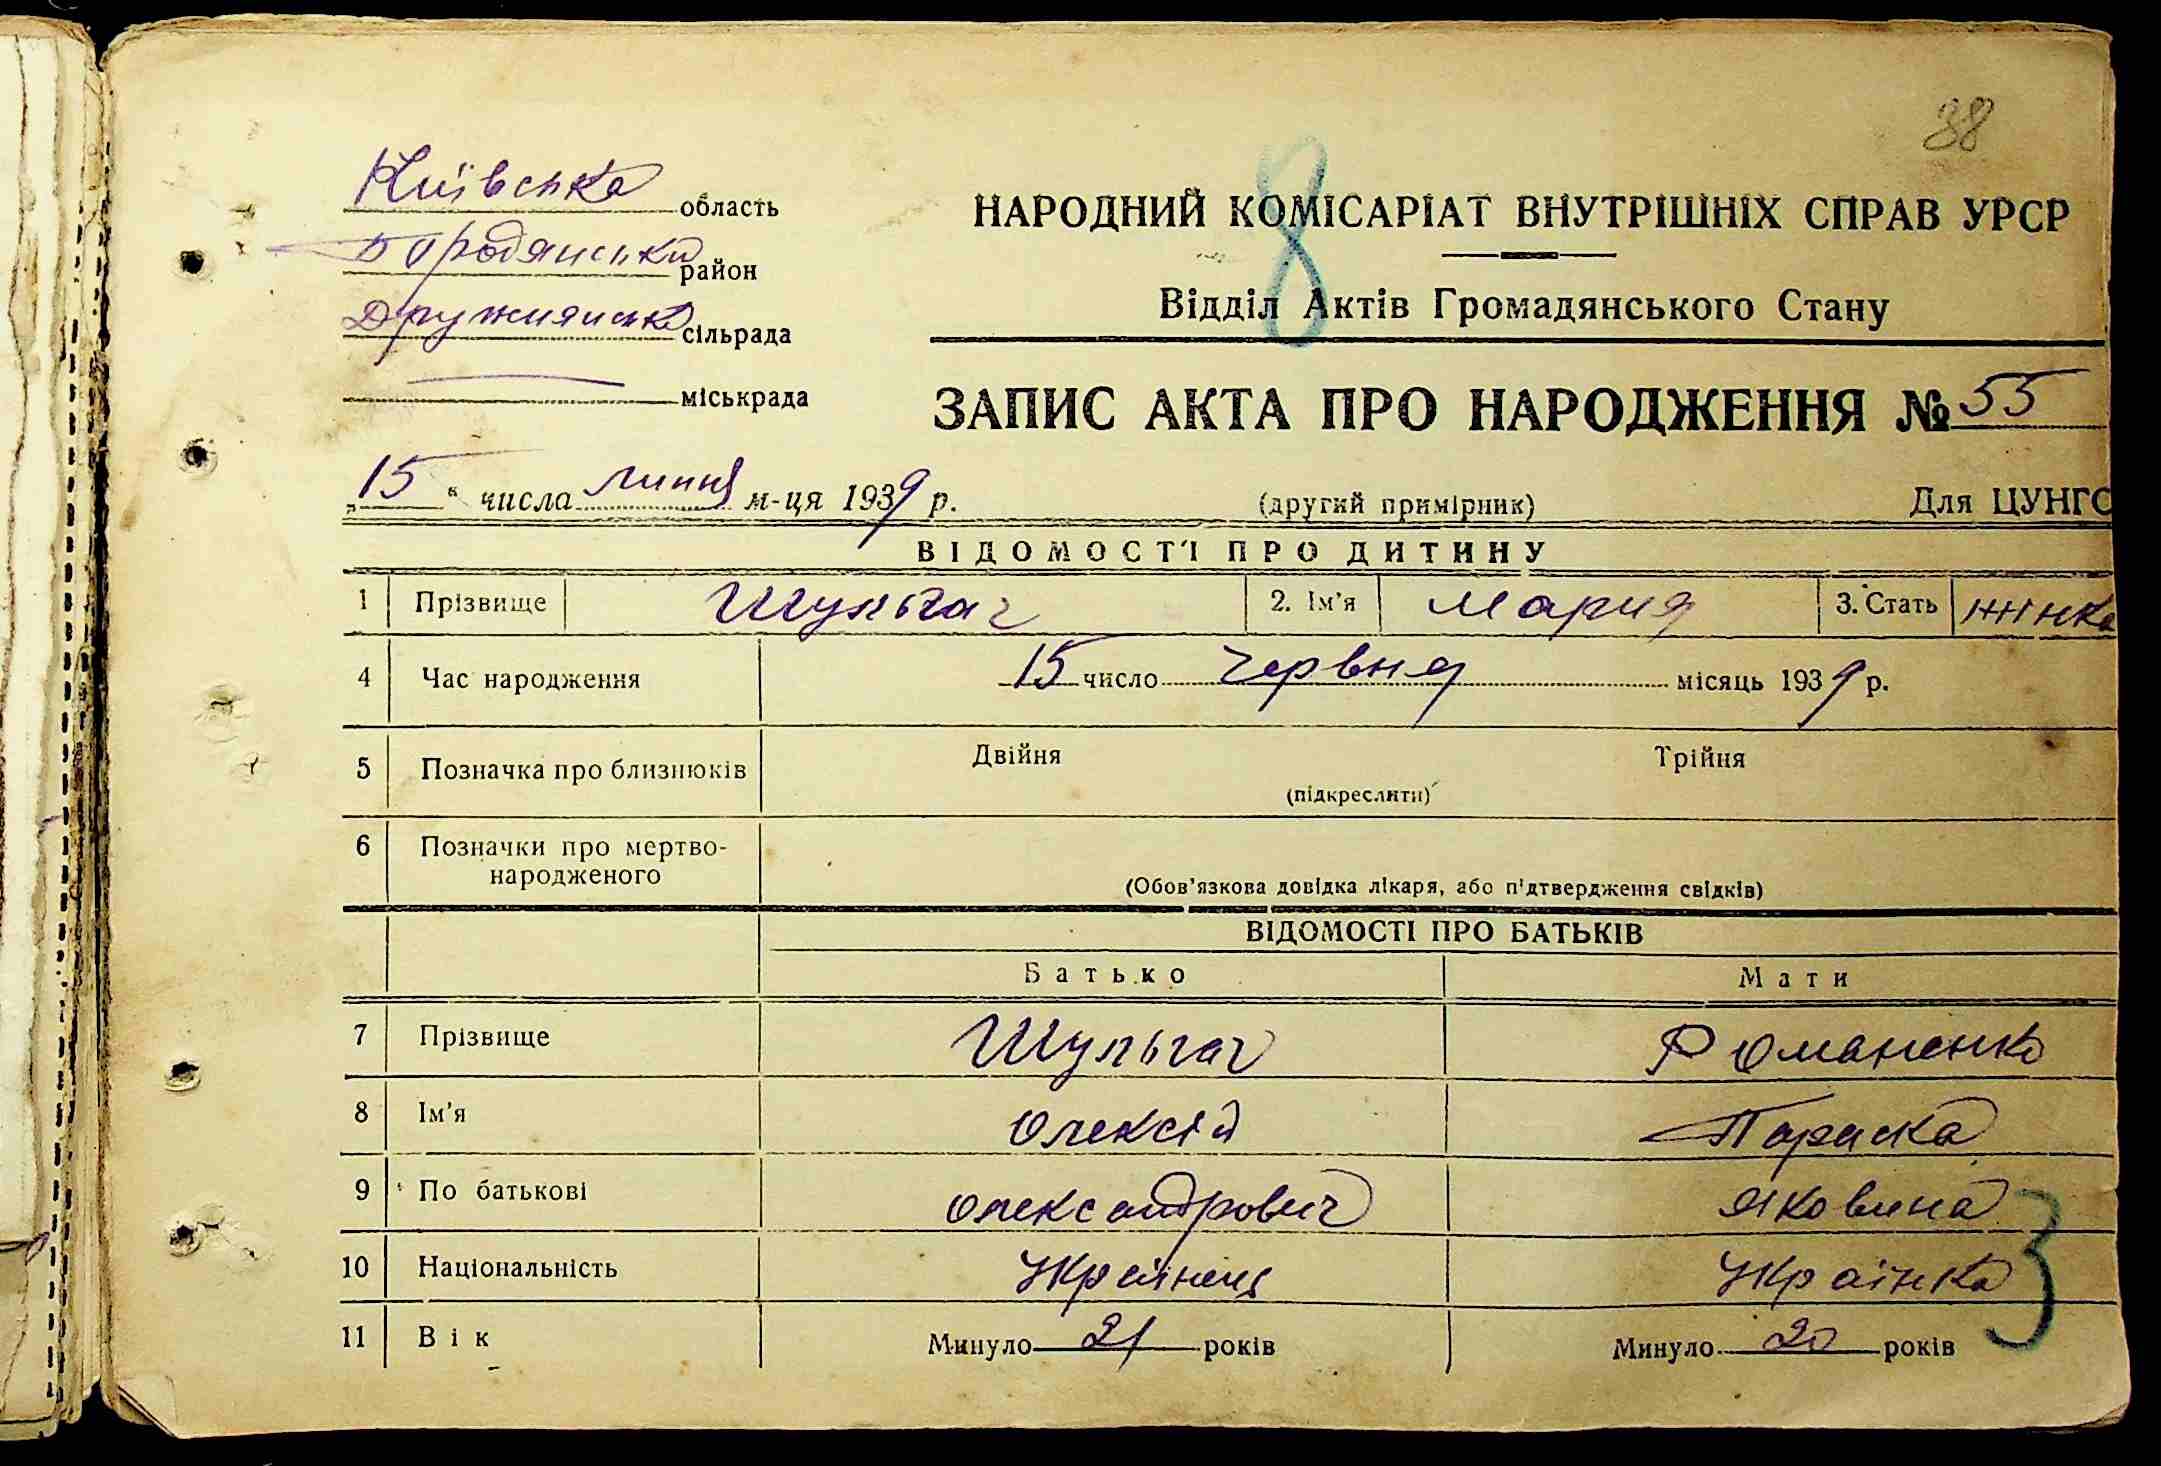 38
Київська область
Бородянський район
Дружнянська сільрада
міськрада
8
НАРОДНИЙ КОМІСАРІАТ ВНУТРІШНІХ СПРАВ УРСР
Відділ Актів Громадянського Стану
ЗАПИС АКТА ПРО НАРОДЖЕННЯ № 55
„15“ числа липня м-ця 1939 р. (другий примірник) Для ЦУНГО
ВІДОМОСТІ ПРО ДИТИНУ
1 Прізвище Шульгач 2. Ім'я Мария 3. Стать жінка
4 Час народження 15 число червня місяць 1939 р.
5 Позначка про близнюків Двійня Трійня
(підкреслити)
6 Позначки про мертво-
народженого
(Обов'язкова довідка лікаря, або підтвердження свідків)
ВІДОМОСТІ ПРО БАТЬКІВ
Батько Мати
7 Прізвище Шульгач Романенко
8 Ім'я Олексій Параска
9 По батькові Олександрович Яковина
10 Національність Українець Українка
3
11 Вік Минуло 21 років Минуло 20 років